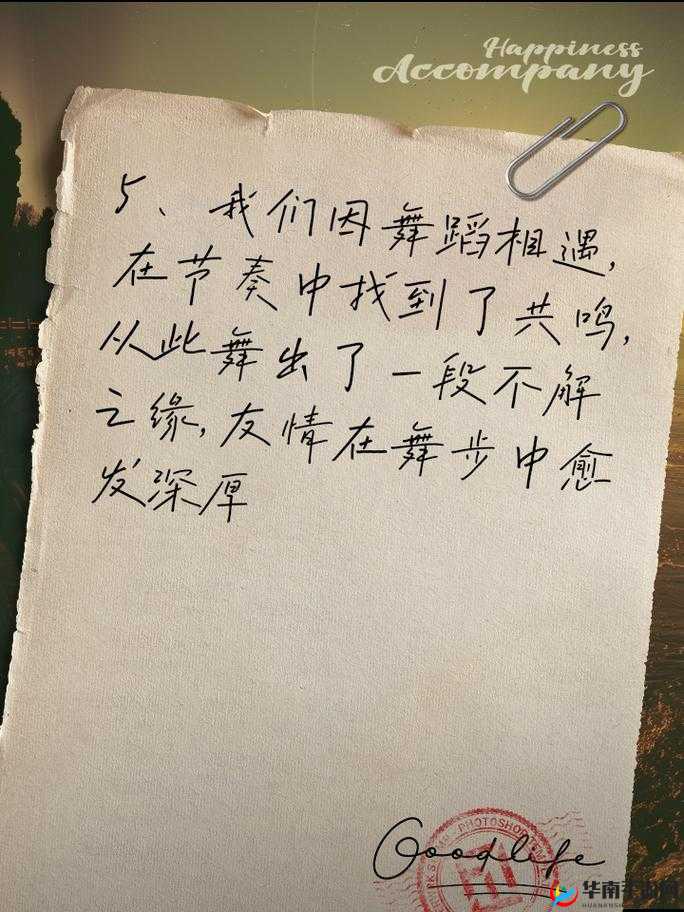 Happiness
Accompany
5、我们因舞蹈相遇,
在节奏中找到了共鸣,
从此舞出了一段不解
之缘,友情在舞步中愈
发深厚
PHOTOSHOP
Goodlife
华南手游网